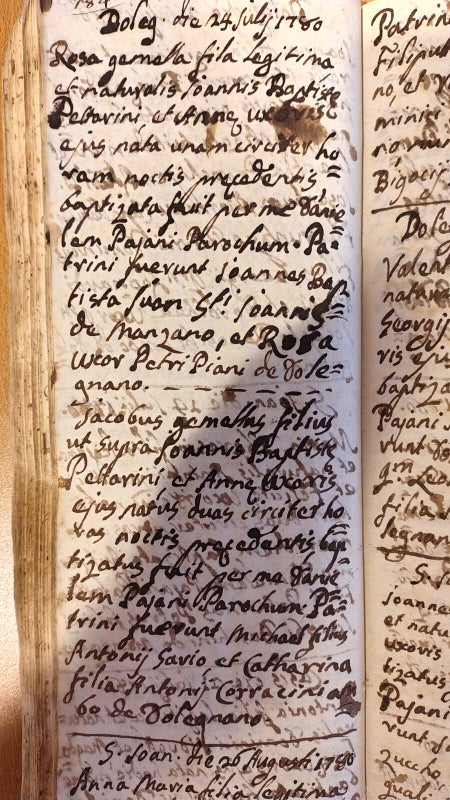 184
Doleg. die 24 Julij 1780
Rosa gemella fila legitima
et naturalis Joannis Baptistę
Peltarini et Annę uxoris
ejus nata unam circiter ho=
ram noctis pręcedentis
baptizata fuit per me Danie=
lem Pajani Parochum. Pa=
trini fuerunt Joannes Bap=
tista Juan Sti Joannis
de Manzano, et Rosa
uxor Petri Piani de Dole=
gnano.
Jacobus gemellus filius
ut supra Joannis Baptistę
Peltarini et Annę uxoris
ejus natus duas circiter ho=
ras noctis pręcedentis bap=
tizatus fuit per me Danie=
lem Pajani Parochum. Pa=
trini fuerunt Michael filius
Antonij Gavio et Catharina
filia Antonij Corracini am=
bo de Dolegnano
S. Joan. die 26 Augusti 1780
Anna Maria filia legitima
Patrin
Filiput
no, et
minici
Bigocij
Doleg
Valent
natura
Georgij
ris eju
baptiza
Pajani
runt Jo
qm. Leo
filia
legnan
S. Jo
Joanne
et natu
uxoris
tizatus
Pajani
runt Jo
zuccho
quali